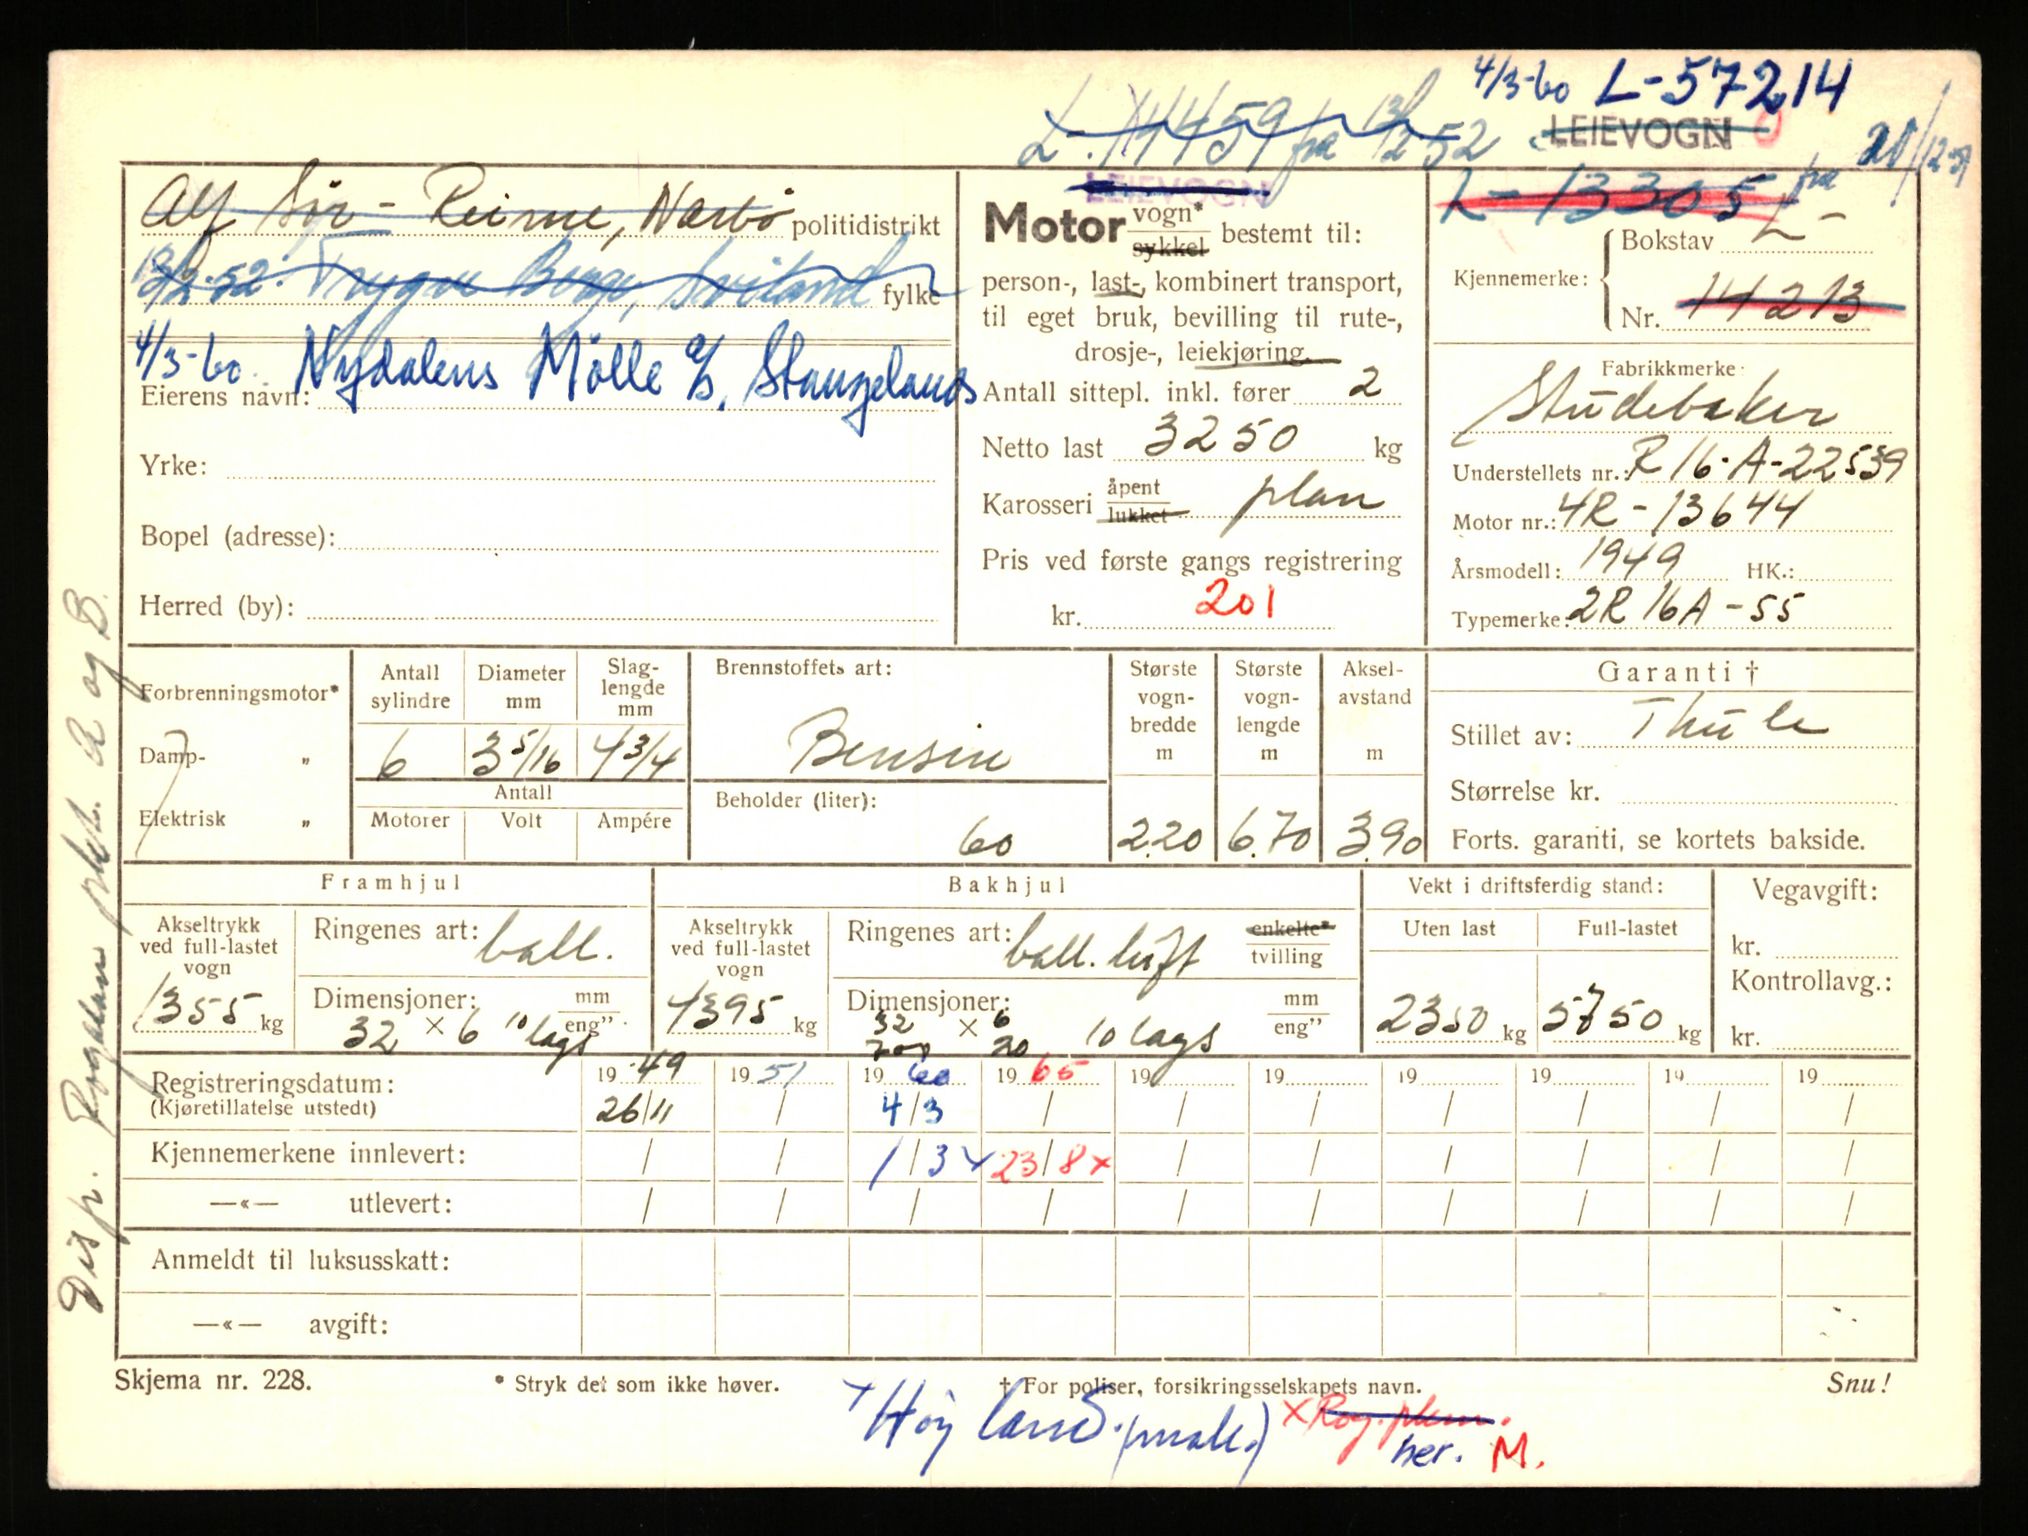 4/3-60 L-57214
L-14459 fra 13/2 52 LEIEVOGN
LEIEVOGN
L-13305 fra
Alf Sør-Reime, Nærbø politidistrikt
13/2-52. Trygve Berge, Sviland fylke
4/3-60. Nydalens Mölle A/S, Stangelands
Eierens navn:
Yrke:
Bopel (adresse):
Herred (by):
Motor vogn* sykkel bestemt til:
person-, last-, kombinert transport,
til eget bruk, bevilling til rute-,
drosje-, leiekjøring.
Antall sittepl. inkl. fører 2
Netto last 3250 kg
Karosseri åpent lukket plan
Pris ved første gangs registrering
kr. 201
Kjennemerke: Bokstav L-
Nr. 14213
Fabrikkmerke
Studebaker
Understellets nr.: R16-A-22539
Motor nr.: 4R-13644
Årsmodell: 1949 HK.:
Typemerke: 2R16A-55
Forbrenningsmotor*
Damp- „
Elektrisk „
Antall sylindre 6
Diameter mm 3 5/16
Slaglengde mm 4 3/4
Antall
Motorer Volt Ampére
Brennstoffets art:
Bensin
Beholder (liter):
60
Største vogn-bredde m 2.20
Største vogn-lengde m 6.70
Aksel-avstand m 3.90
Garanti †
Stillet av: Thule
Størrelse kr.
Forts. garanti, se kortets bakside.
Framhjul
Akseltrykk ved full-lastet vogn 1355 kg
Ringenes art: ball.
Dimensjoner: mm eng”
32 × 6 10 lags
Bakhjul
Akseltrykk ved full-lastet vogn 4395 kg
Ringenes art: ball. luft enkelte* tvilling
Dimensjoner: mm eng”
32 × 6 10 lags
700 20
Vekt i driftsferdig stand:
Uten last Full-lastet
2350 kg 5750 kg
Vegavgift:
kr.
Kontrollavg.:
kr.
Registreringsdatum: 19 49 19 51 19 60 19 65 19 19 19 19 19 19
(Kjøretillatelse utstedt) 26/11 / 4/3 / / / / / / /
Kjennemerkene innlevert: / / 1/3 × 23/8 × / / / / / /
—«— utlevert: / / / / / / / / / /
Anmeldt til luksusskatt:
—«— avgift:
Skjema nr. 228. * Stryk det som ikke høver. † For poliser, forsikringsselskapets navn. Snu!
Høyland. × Rog. plem.
her. M.
Disp. Rogaland pkt. a og B.